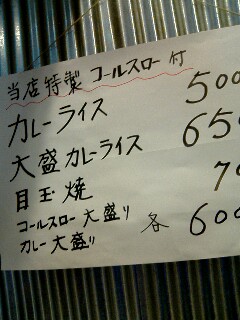 当店特製 コールスロー付
カレーライス 500
大盛カレーライス 650
目玉焼 70
コールスロー大盛り
カレー大盛り 各 600